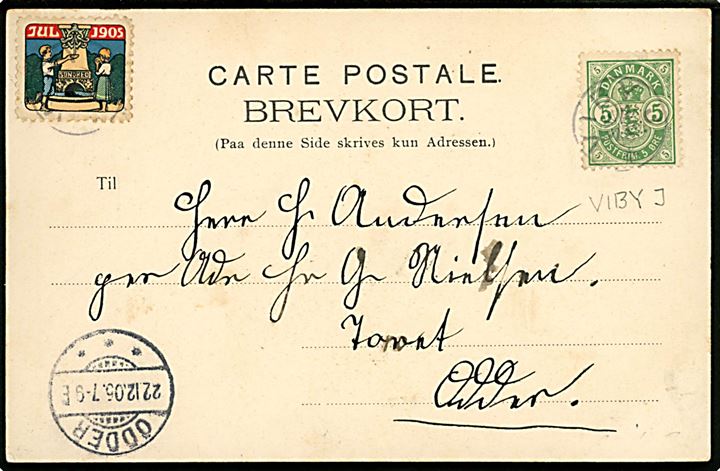 JUL 1905
SUNDHED
DANMARK
5 5
POSTFRIM. 5 ØRE
CARTE POSTALE.
BREVKORT.
(Paa denne Side skrives kun Adressen.)
VIBY J
Til
Herr H. Andersen
per Adr Hr G. Nielsen.
Torvet
Odder.
22.12.05. 7-9 E
ODDER